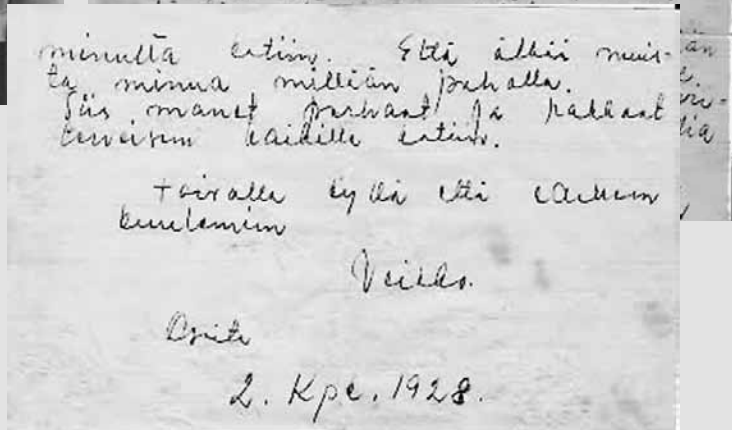 minulta kotiin. Että älkää muis-
ta minua millään pahalla.
Siis monet parhaat ja rakkaat
terveiseni kaikille kotiin.
toivolla kyllä että
kuulemiin
Veikko.
Osoite
2. Kpc. 1928.
än
dia